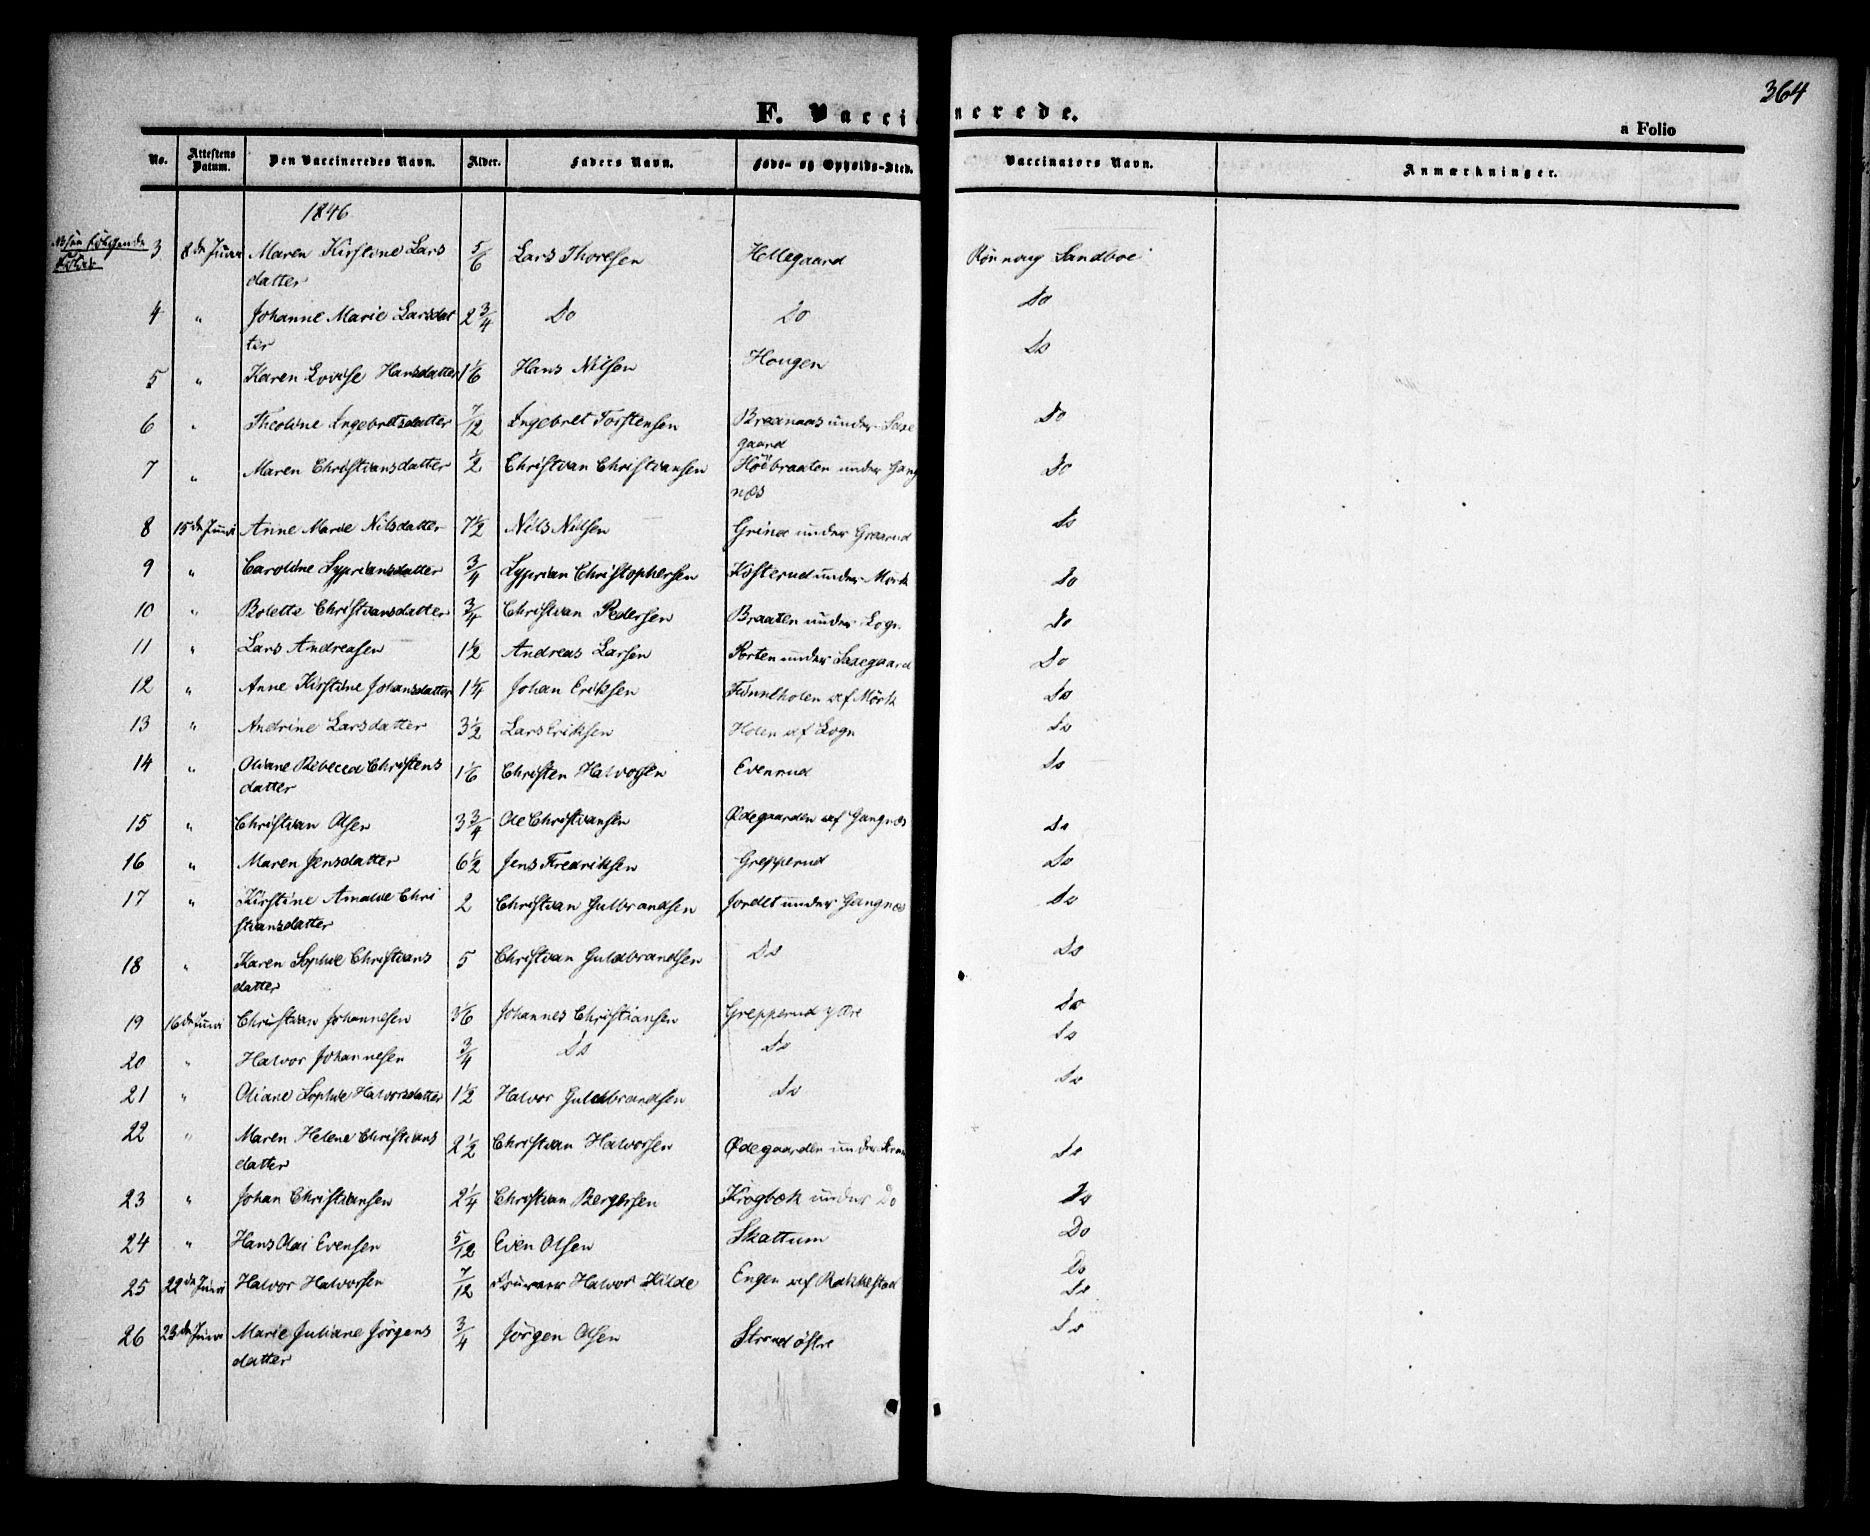 364
F. Vaccinerede.
a Folio
No. Attestens Datum. Den Vaccineredes Navn. Alder. Faders Navn. Føde- og Opholds-Sted. Vaccinators Navn. Anmærkninger.
1846
følgende
3 8de Juni Maren Kirstine Lars 5/6 Lars Thoresen Hellegaard Rønnoug Sandboe
datter
4 " Johanne Marie Larsdat 2 3/4 Do Do Do
ter
5 " Karen Lovise Hansdatter 1 1/6 Hans Nilsen Hougen Do
6 " Theoline Ingebretsdatter 7/12 Ingebret Torstensen Breenaas under Saxe Do
gaard
7 " Maren Christiansdatter 1/2 Christian Christiansen Höibraaten under Gang Do
næs
8 15de Juni Anne Marie Nilsdatter 7 1/2 Nils Nilsen Grind under Graarud Do
9 " Caroline Sypriansdatter 3/4 Syprian Christophersen Kosterud under Mörk Do
10 " Bolette Christiansdatter 3/4 Christian Pedersen Braaten under Logn Do
11 " Lars Andreasen 1 1/2 Andreas Larsen Porten under Saxegaard Do
12 " Anne Kirstine Johansdatter 1 1/4 Johan Eriksen Tunnelholen af Mörk Do
13 " Andrine Larsdatter 3 1/2 Lars Eriksen Holen af Logn Do
14 " Oliane Rebecca Christens 1 1/6 Christen Halvorsen Evenrud Do
datter
15 " Christian Olsen 3 3/4 Ole Christiansen Ødegaarden af Gangnæs Do
16 " Maren Jensdatter 6 1/2 Jens Fredriksen Grepperud Do
17 " Kirstine Amalie Chri 2 Christian Gulbrandsen Jordet under Gangnæs Do
stiansdatter
18 " Karen Sophie Christians 5 Christian Guldbrandsen Do Do
datter
19 16de Juni Christian Johannesen 3 1/6 Johannes Christiansen Grepperud ytre Do
20 " Halvor Johannesen 3/4 Do Do Do
21 " Oliane Sophie Halvorsdatter 1 1/2 Halvor Guldbrandsen Do Do
22 " Maren Helene Christians 2 1/2 Christian Halvorsen Ødegaarden under Do
datter
23 " Johan Christiansen 2 1/4 Christian Bergersen Krogbæk under Do Do
24 " Hans Olai Evensen 5/12 Even Olsen Skattum Do
Do
25 22de Juni Halvor Halvorsen 7/12 Halvor Hilde Engen af Rakkestad Do
26 23de Juni Marie Juliane Jörgens 3/4 Jörgen Olsen Strand östre Do
datter